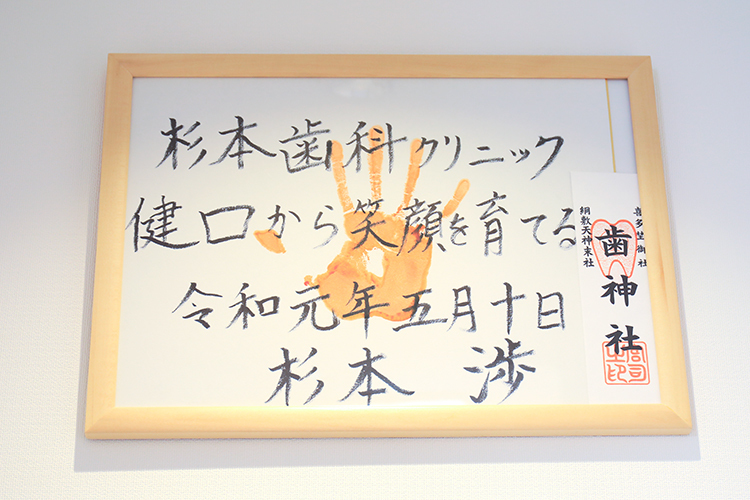 杉本歯科クリニック
健口から笑顔を育てる
令和元年五月十日
杉本 渉
喜多埜御社
歯神社
綱敷天神末社